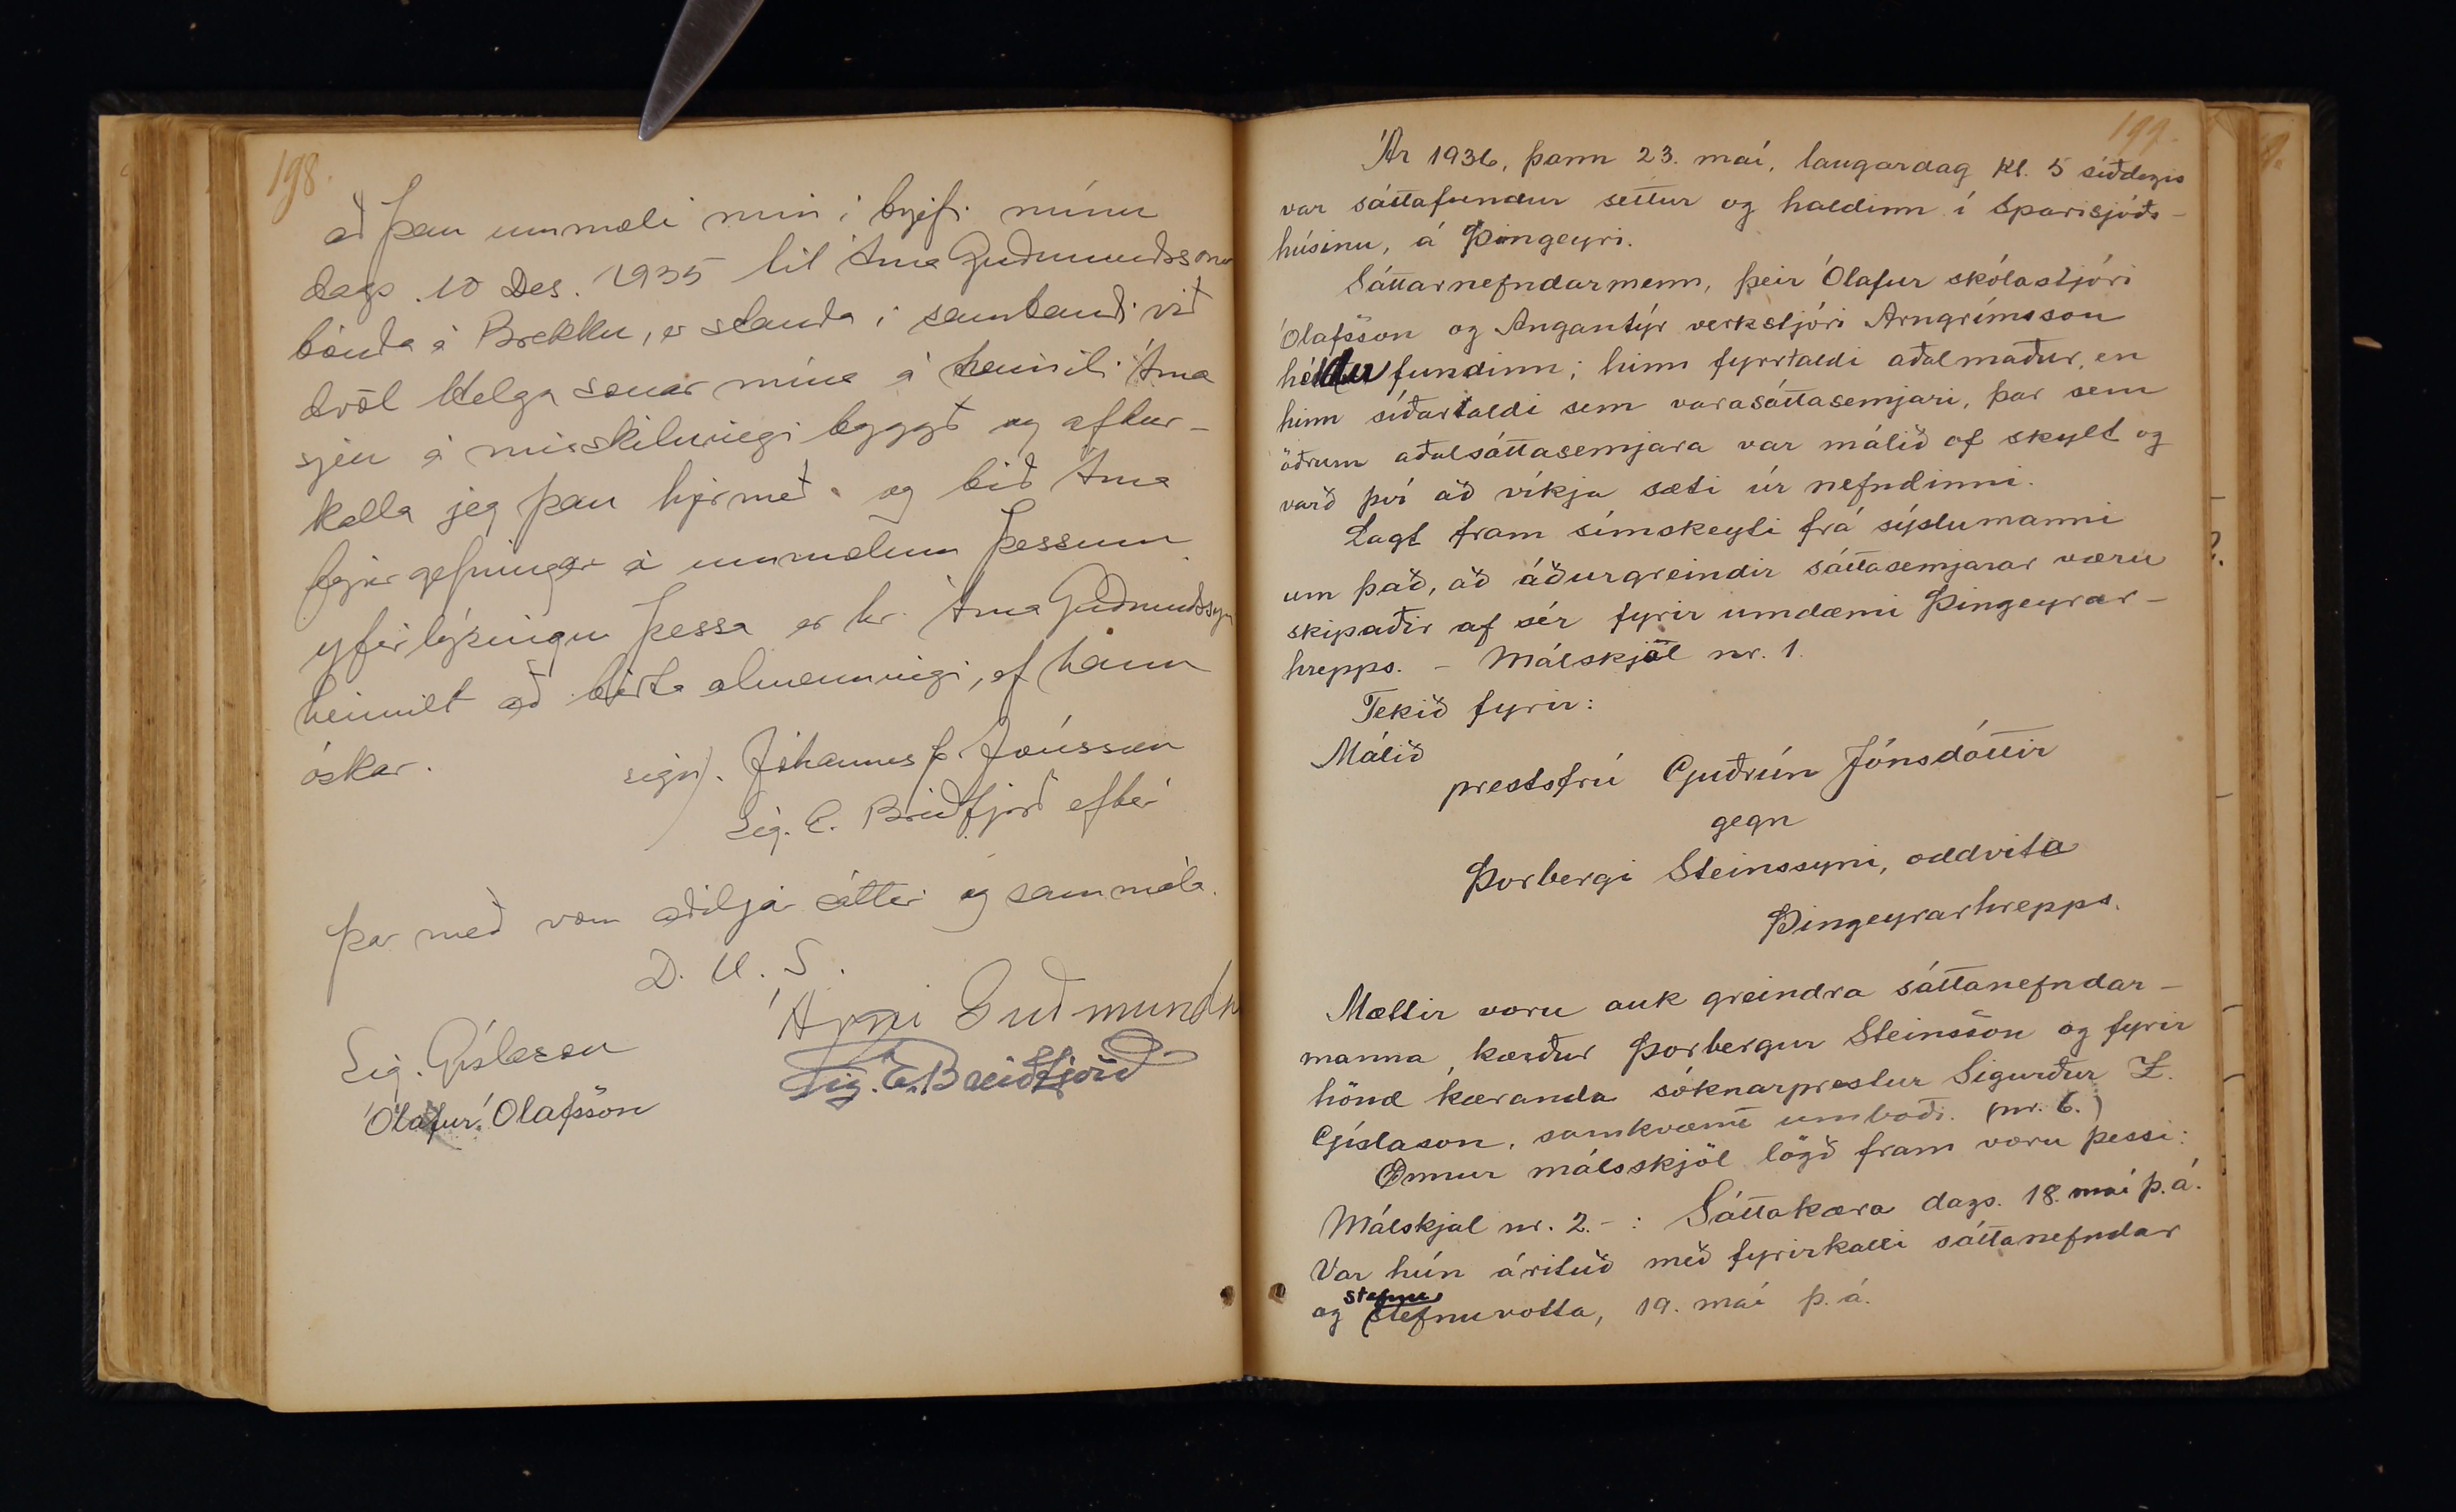 198.
að þau ummæli mín í brjefi mínu
dags. 10 Des. 1935 til Árna Guðmundssonar
bónda á Brekku, er standa í sambandi við
dvöl Helga sonar míns á heimili Árna
sjeu á misskilningi byggð og aftur-
kalla jeg þau hjer með og bið Árna
fyrirgefningar á ummælum þessum
yfirlýsingu þessa er hr. Árna Guðmundssyni
heimilt að birta almenningi, ef hann
óskar.
sign). Jóhannes Jónsson
Sig. E. Breiðfjörð eftir
Þar með voru aðiljar sáttir og sammála.
D. U. S.
Árni Guðmunds
Sig. Gíslason
Sig. E. Breiðfjörð
Ólafur Ólafsson
199.
Ár 1936, þann 23. maí, laugardag kl. 5 síðdegis
var sáttafundur settur og haldinn í Sparisjóðs-
húsinu, á Þingeyri.
Sáttarnefndarmenn, þeir Ólafur skólastjóri
Ólafsson og Angantýr verkstjóri Arngrímsson
héldu fundinn; hinn fyrrtaldi aðalmaður, en
hinn síðartaldi sem varasáttasemjari, þar sem
öðrum aðalsáttasemjara var málið of skylt og
varð því að víkja sæti úr nefndinni.
Lagt fram símskeyti frá sýslumanni
um það, að áðurgreindir sáttasemjarar væru
skipaðir af sér fyrir umdæmi Þingeyrar-
hrepps. - Málskjöl nr. 1.
Tekið fyrir:
Málið
prestsfrú Guðrún Jónsdóttir
gegn
Þorbergi Steinssyni, oddvita
Þingeyrarhrepps.
Mættir voru auk greindra sáttanefndar-
manna, kærður Þorbergur Steinsson og fyrir
hönd kæranda sóknarprestur Sigurður Z.
Gíslason, samkvæmt umboði. (nr. 6.)
Önnur málsskjöl lögð fram voru þessi:
Málskjal nr. 2. - : Sáttakæra dags. 18. maí þ.á.
Var hún árituð með fyrirkalli sáttanefndar
og stefnuvotta, 19. maí þ.á.